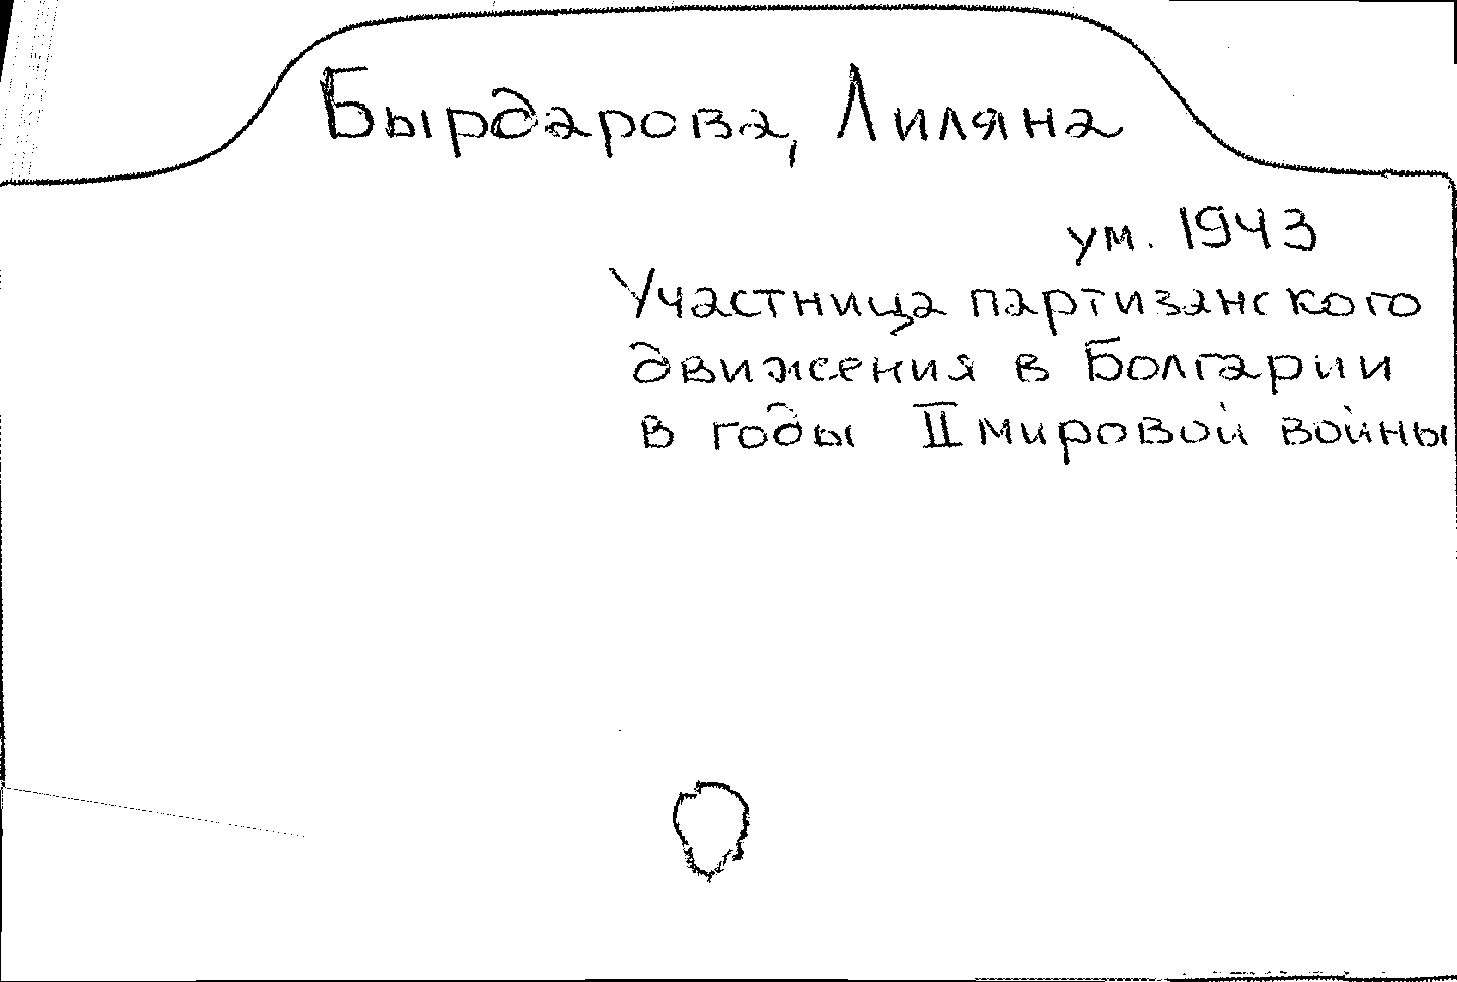 Бырдарова, Лиляна
ум. 1943
Участница партизанского
движения в Болгарии
в годы II мировой войны